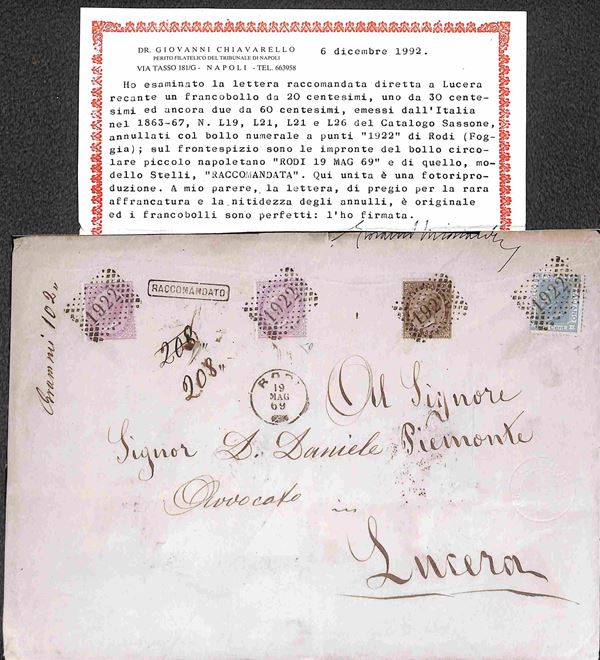 DR. GIOVANNI CHIAVARELLO
PERITO FILATELICO DEL TRIBUNALE DI NAPOLI
VIA TASSO 181/G - NAPOLI - TEL. 663958
6 dicembre 1992.
Ho esaminato la lettera raccomandata diretta a Lucera
recante un francobollo da 20 centesimi, uno da 30 cente-
simi ed ancora due da 60 centesimi, emessi dall'Italia
nel 1863-67, N. L19, L21, L21 e L26 del Catalogo Sassone,
annullati col bollo numerale a punti "1922" di Rodi (Fog-
gia); sul frontespizio sono le impronte del bollo circo-
lare piccolo napoletano "RODI 19 MAG 69" e di quello, mo-
dello Stelli, "RACCOMANDATA". Qui unita è una fotoripro-
duzione. A mio parere, la lettera, di pregio per la rara
affrancatura e la nitidezza degli annulli, è originale
ed i francobolli sono perfetti: l'ho firmata.
Grammi 102"
1922
RACCOMANDATO
1922
1922
1922
208"
208"
RODI
19
MAG
69
Al Signore
Signor D. Daniele Piemonte
Avvocato in
Lucera